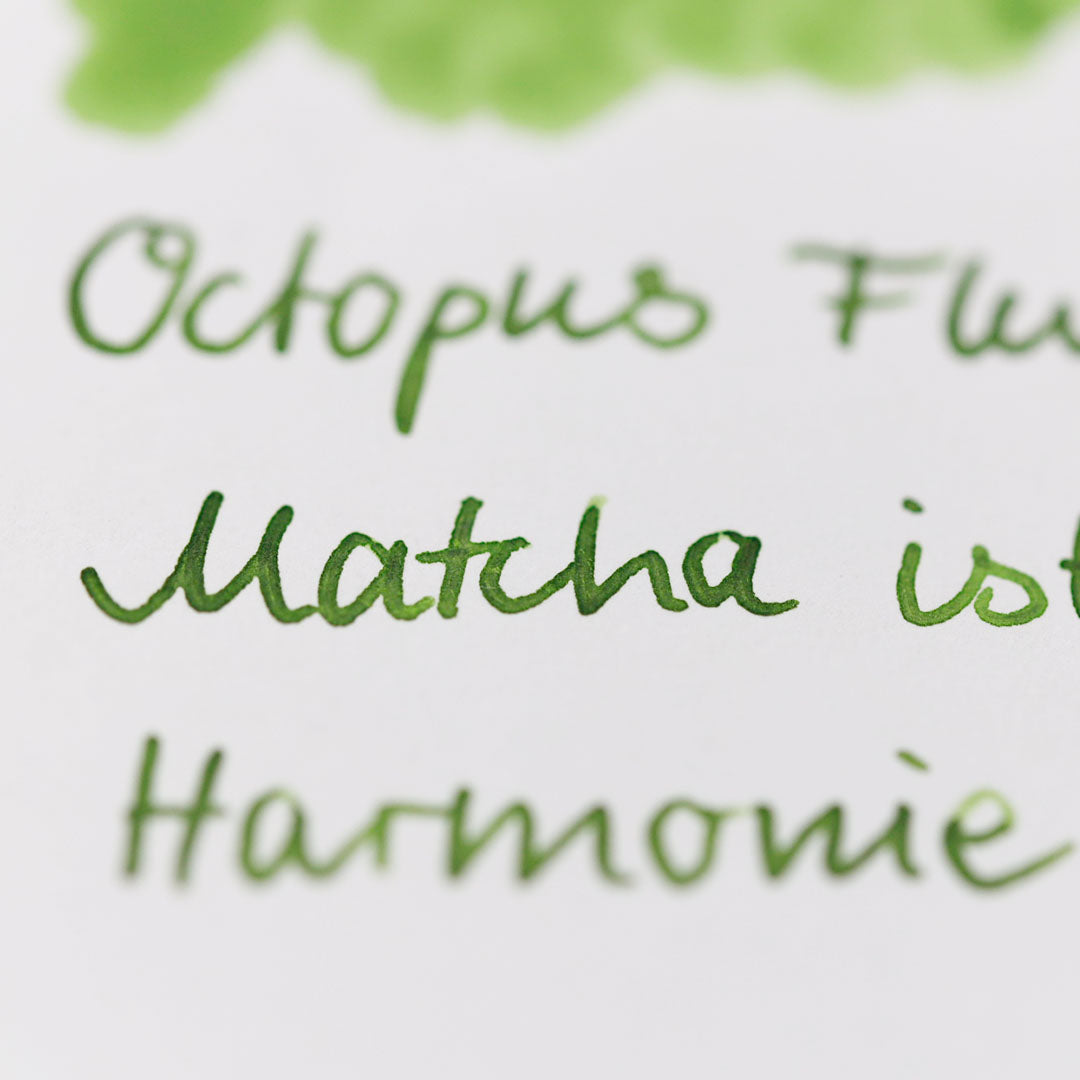 Octopus Flu
Matcha ist
Harmonie